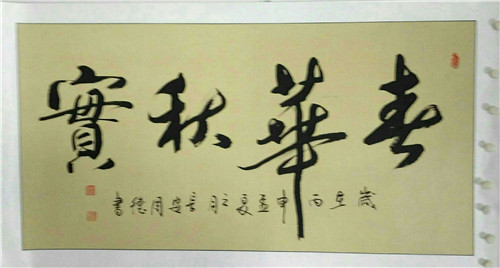 春華秋實
歲在丙申孟夏之月長安周德書